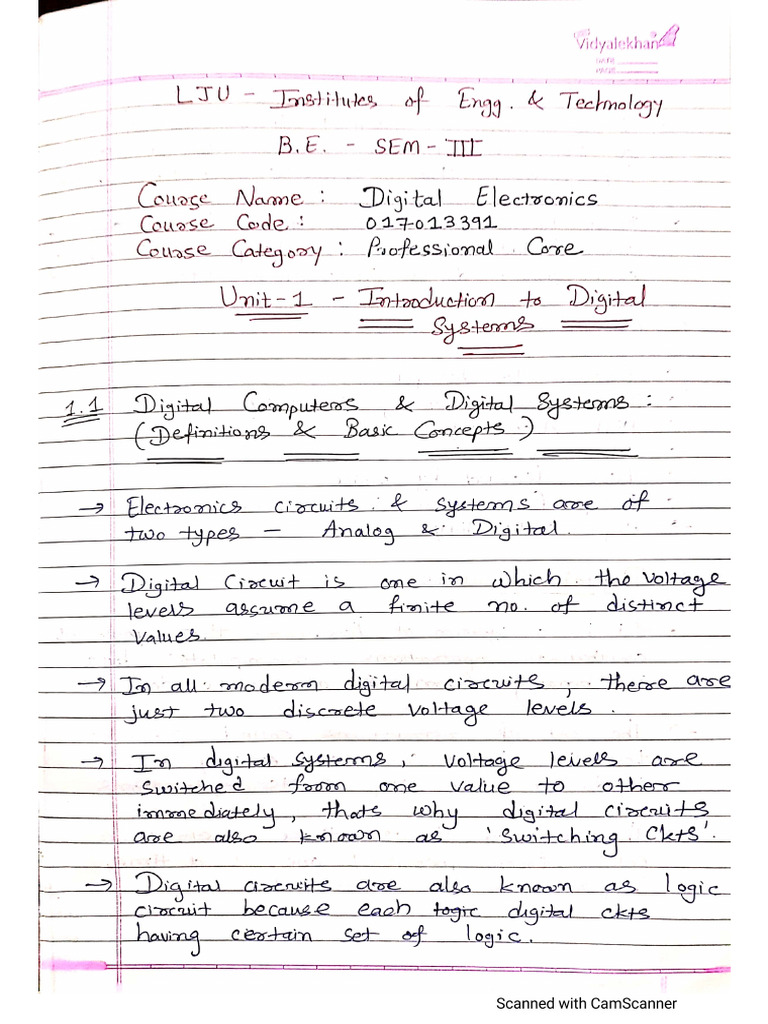 Vidyalekhan
DATE
PAGE
LJU - Institutes of Engg. & Technology
B.E. - SEM - III
Course Name : Digital Electronics
Course Code : 017013391
Course Category : Professional Core
Unit-1 - Introduction to Digital
Systems
1.1 Digital Computers & Digital Systems :
(Definitions & Basic Concepts)
→ Electronics circuits & systems are of
two types - Analog & Digital.
→ Digital Circuit is one in which the voltage
levels assume a finite no. of distinct
values.
→ In all modern digital circuits, there are
just two discrete voltage levels.
→ In digital systems, voltage levels are
switched from one value to other
immediately, thats why digital circuits
are also known as 'switching ckts'.
→ Digital circuits are also known as logic
circuit because each logic digital ckts
having certain set of logic.
Scanned with CamScanner